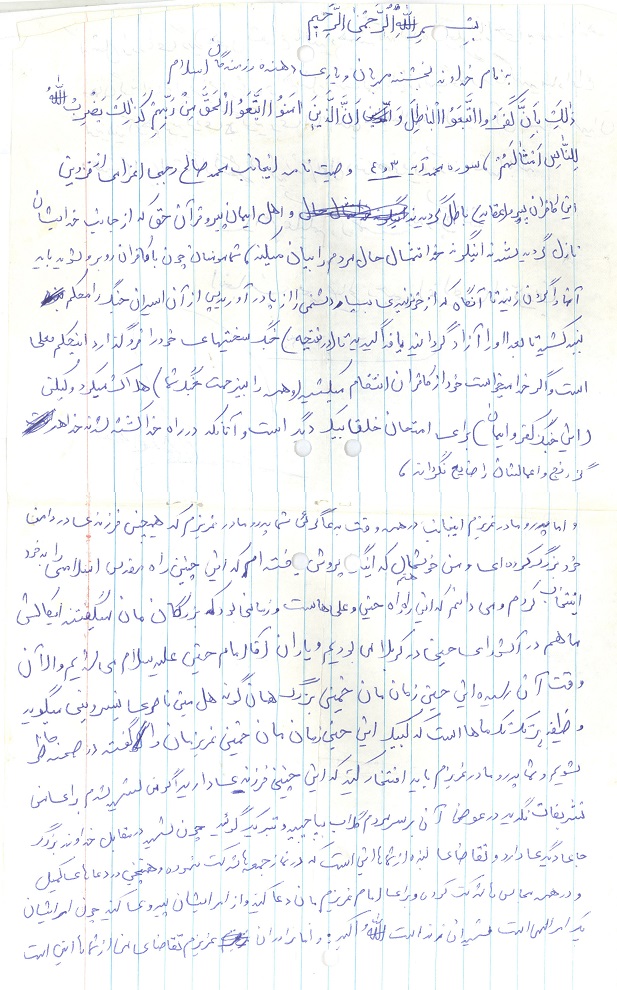 بسم الله الرحمن الرحیم
به نام خداوند بخشنده مهربان و یاری دهنده رزمندگان اسلام
ذلِكَ بِاَنَّ كَفَرُوا اتَّبَعُوا الْباطِلَ وَ اَنَّ الَّذینَ امَنُوا اتَّبَعُوا الْحَقَّ مِنْ رَبِّهِمْ كَذلِكَ یَضْرِبُ اللهُ
لِلنّاسِ اَمْثالَهُمْ، سوره محمد آیه ۳ و ٤ وصیت نامه اینجانب محمد صالح رجبی اعزامی از قزوین
این کافران پیرو عقاید باطل گردیدند و اهل ایمان پیرو قرآن حق که از جانب خدا ایشان
نازل گردید شدند اینگونه خدا مثال حال مردم را بیان میکند) شما مومنان چون با کافران روبرو شوید باید
آنها را گردن زنید تا آنگاه که از خونریزی بسیار دشمن را از پا در آورید پس از آن اسیران جنگ را محکم
بند کشید تا بعدا او را آزاد گردانید یا فدا گیرید تا (در نتیجه) جنگ سختیهای خود را فرو گذارد اینحکم فعلی
است و اگر خدا میخواست خود از کافران انتقام میکشید (و همه را بیزحمت جنگ شما) هلاک میکرد ولیکن
(این جنگ کفر و ایمان) برای امتحان خلق بیکدیگر است و آنانکه در راه خدا کشته شدند خداهد
گز رنج و اعمالشان را ضایع نگرداند،
و اما پدر و مادر عزیزم اینجانب در همه وقت بدعاگوئی شما پدر و مادر عزیزم که همچنین فرزندی در دامن
خود بزرگ کرده ای و من خوشحال که اینگونه پرورش یافته ام که این چنین راه مقدس اسلامی را به خود
انتخاب کردم و می دانم که این راه راه حسین و علی هاست و زمانی بود که بزرگان مان میگفتند ایکاش
ما هم در آشورای حسین در کربلا می بودیم و یاران آقا امام حسین علیه سلام می شدیم و الآن
وقت آن رسیده این حسین زمان مان خمینی بزرگ همان گونه هل من ناصری ینصرونی میگوید
وظیفه بر تک تک ماها است که لبیک این حسین زمان مان خمینی عزیزمان را گفته در صحنه حاظر
شویم و شما پدر و مادر عزیزم باید افتخار کنید که این چنین فرزندی دارید اگر من شهید شدم برای من
تشریفات نگیرید در عوض آن بر سر مزارم گلاب بپاچید و تبریک گوئید چون شهید در مقابل خداوند بزرگ
جای دیگری دارد و تقاضای بنده از شما این است که در نماز جمعه ها شرکت نموده و همچنین در دعاهای کمیل
و در همه مراسم ها شرکت کرده و برای امام عزیزم مان دعا کنید و از امر ایشان پیروی کنید چون امر ایشان
یک امر الهی است الله اکبر: و اما برادران عزیزم تقاضای من از شما ها این است